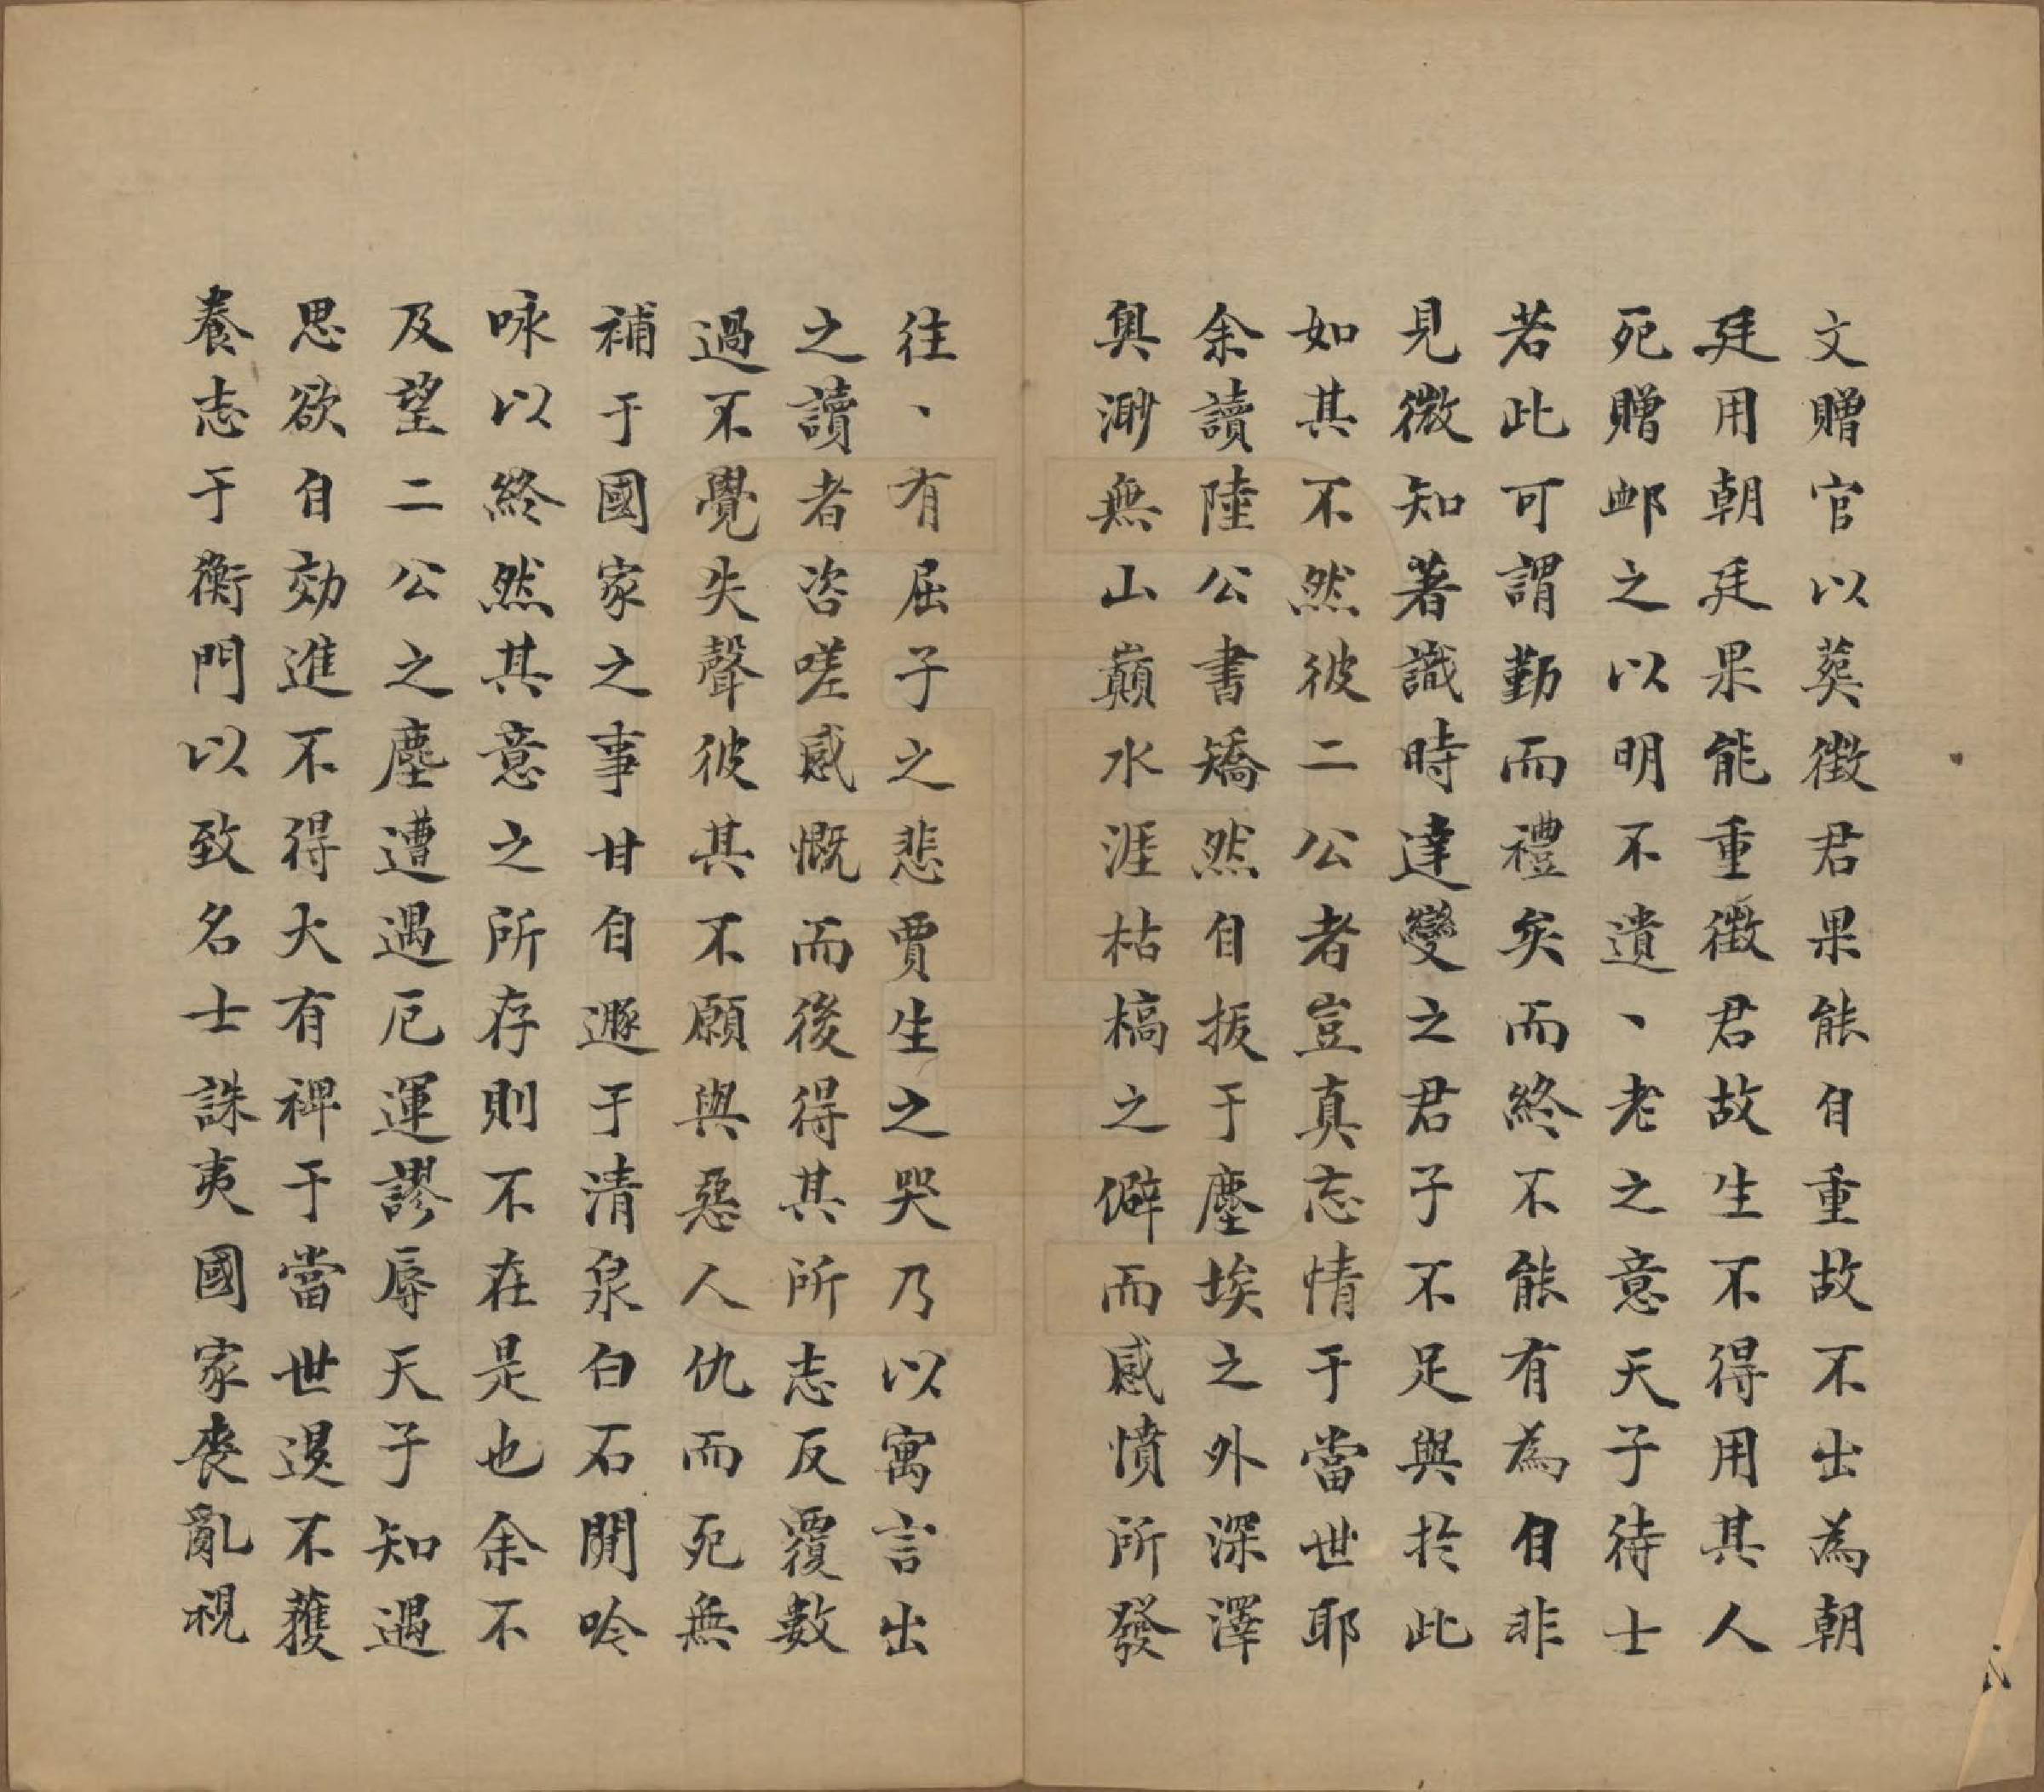 文贈官以葬徵君果能自重故不出為朝
廷用朝廷果能重徵君故生不得用其人
死贈卹之以明不遺丶老之意天子待士
若此可謂勤而禮矣而終不能有為自非
見微知著識時達變之君子不足與於此
如其不然彼二公者豈真忘情于當世耶
余讀陸公書矯然自拔于塵埃之外深澤
奥渺無山巔水涯枯槁之僻而感憤所發
往丶有屈子之悲賈生之哭乃以寓言出
之讀者咨嗟感慨而後得其所志反覆數
過不覺失聲彼其不願與惡人仇而死無
補于國家之事甘自遯于清泉白石閒吟
咏以終然其意之所存則不在是也余不
及望二公之塵遭遇厄運謬辱天子知遇
思欲自効進不得大有裨于當世退不獲
養志于衡門以致名士誅夷國家喪亂視